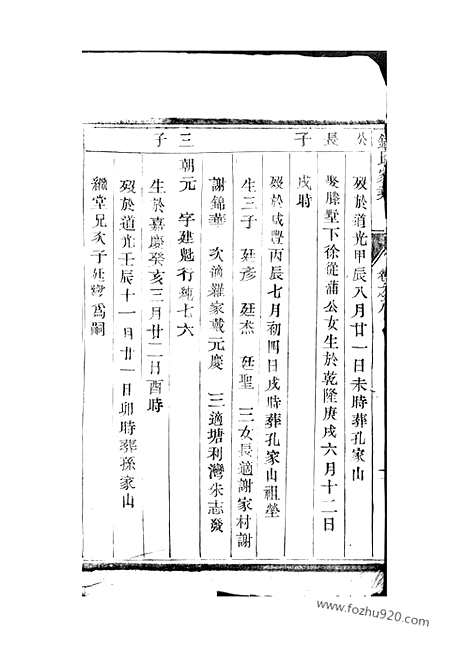 歿於道光甲辰八月廿一日未時葬孔家山
公長子
娶滕墅下徐從蒲公女生於乾隆庚戌六月十二日
戌時
歿於咸豐丙辰七月初四日戌時葬孔家山祖塋
生三子 廷彥 廷杰 廷聖 三女長適謝家村謝
謝錦華 次適羅家戴元慶 三適塘利灣朱志發
三子
朝元 字廷魁行純七六
生於嘉慶癸亥三月廿二日酉時
歿於道光壬辰十一月廿一日卯時葬孫家山
繼堂兄次子廷彎爲嗣
www.fozhu920.com